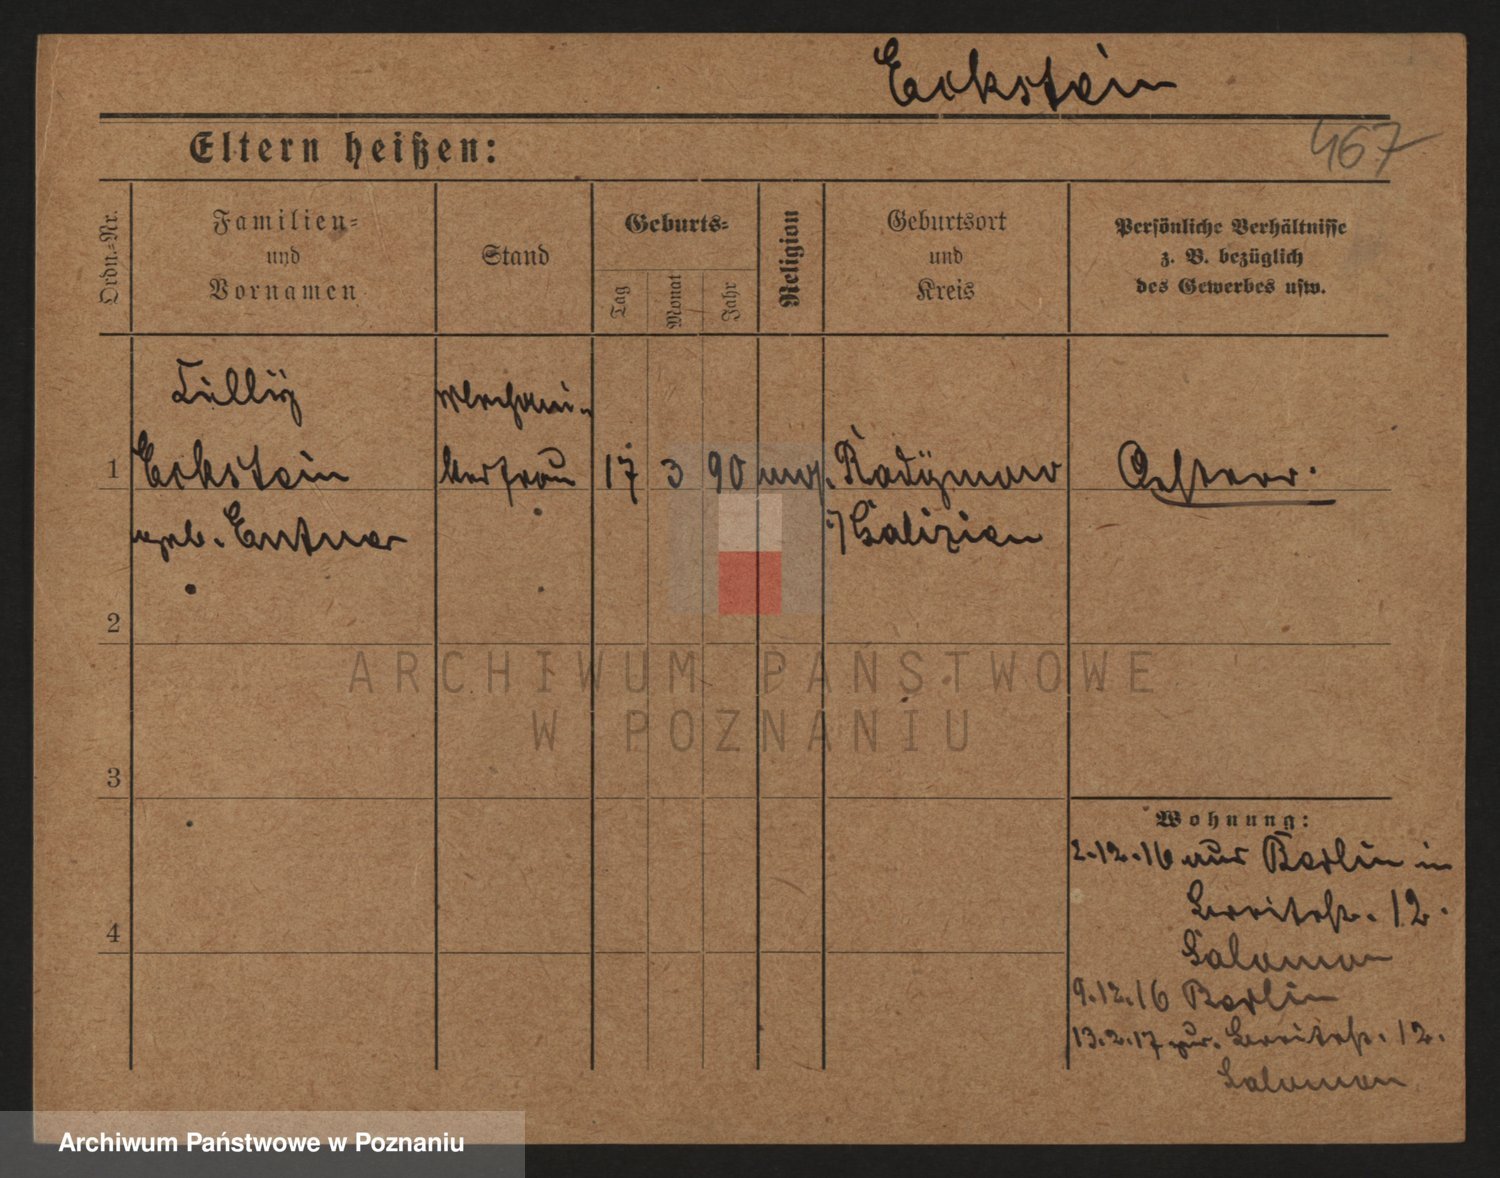 Eckstein
467
Eltern heißen:
Ordn.-Nr.
Familien-
und
Vornamen
Stand
Geburts-
Tag
Monat
Jahr
Religion
Geburtsort
und
Kreis
Persönliche Verhältnisse
z. B. bezüglich
des Gewerbes usw.
Lilly
Mechani-
1 Eckstein kerfrau 17 3 90 mos. Radymno Oesterr.
geb. i/Galizien
2
3
4
Wohnung:
2.12.16 aus Berlin in
12.
Salomon
9.12.16 Berlin
13.2.17 zur. 12.
Salomon
ARCHIWUM PAŃSTWOWE
W POZNANIU
Archiwum Państwowe w Poznaniu